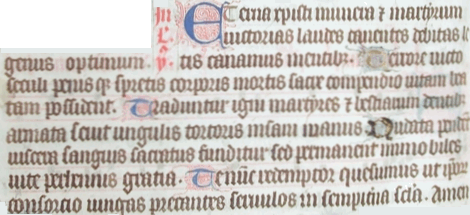 Eterna xpisti munera ⁊ martyrum
uictorias laudes canentes debitas le
genus optimum. tis canamus mentibz. Terrore uicto
seculi penisqz spretis corporis mortis sacre compendio uitam bea
tam possident. Traduntur igni martyres ⁊ bestiarum dentibz
armata seuit ungulis tortoris insani manus. Nudata pendent
uiscera sanguis sacratus funditur sed permanent immobiles
uite perhennis gratia. Te nunc redemptor quesumus ut ipoꝝ
consorcio iungas precantes seruulos in sempitna scła. Amen